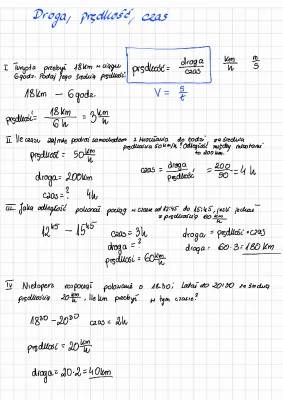 Droga, prędkość, czas
prędkość = droga / czas km/h m/s
V = s/t
I. Turysta przebył 18km w ciągu
6 godz. Podaj jego średnią prędkość
18km - 6 godz.
prędkość = 18km / 6h = 3 km/h
II W czasie zajmie podróż samochodem z do Łodzi, ze średnią
prędkością 50km/h? Odległość między miastami
to 200km.
prędkość = 50 km/h
droga = 200km
czas = ? 4h
czas = droga / prędkość = 200 / 50 = 4h
III Jaką odległość pokonał pociąg w czasie od 12:45 do 15:45, jeśli jechał
z prędkością 60 km/h
12⁴⁵ - 15⁴⁵ czas = 3h
droga = ?
prędkość = 60 km/h
droga = prędkość · czas
droga = 60·3 = 180km
IV Nietoperz rozpoczął polowanie o 18:30 i latał do 20:30 ze średnią
prędkością 20 km/h. Ile km przebył w tym czasie?
18³⁰ - 20³⁰ czas = 2h
prędkość = 20 km/h
droga = 20·2 = 40km